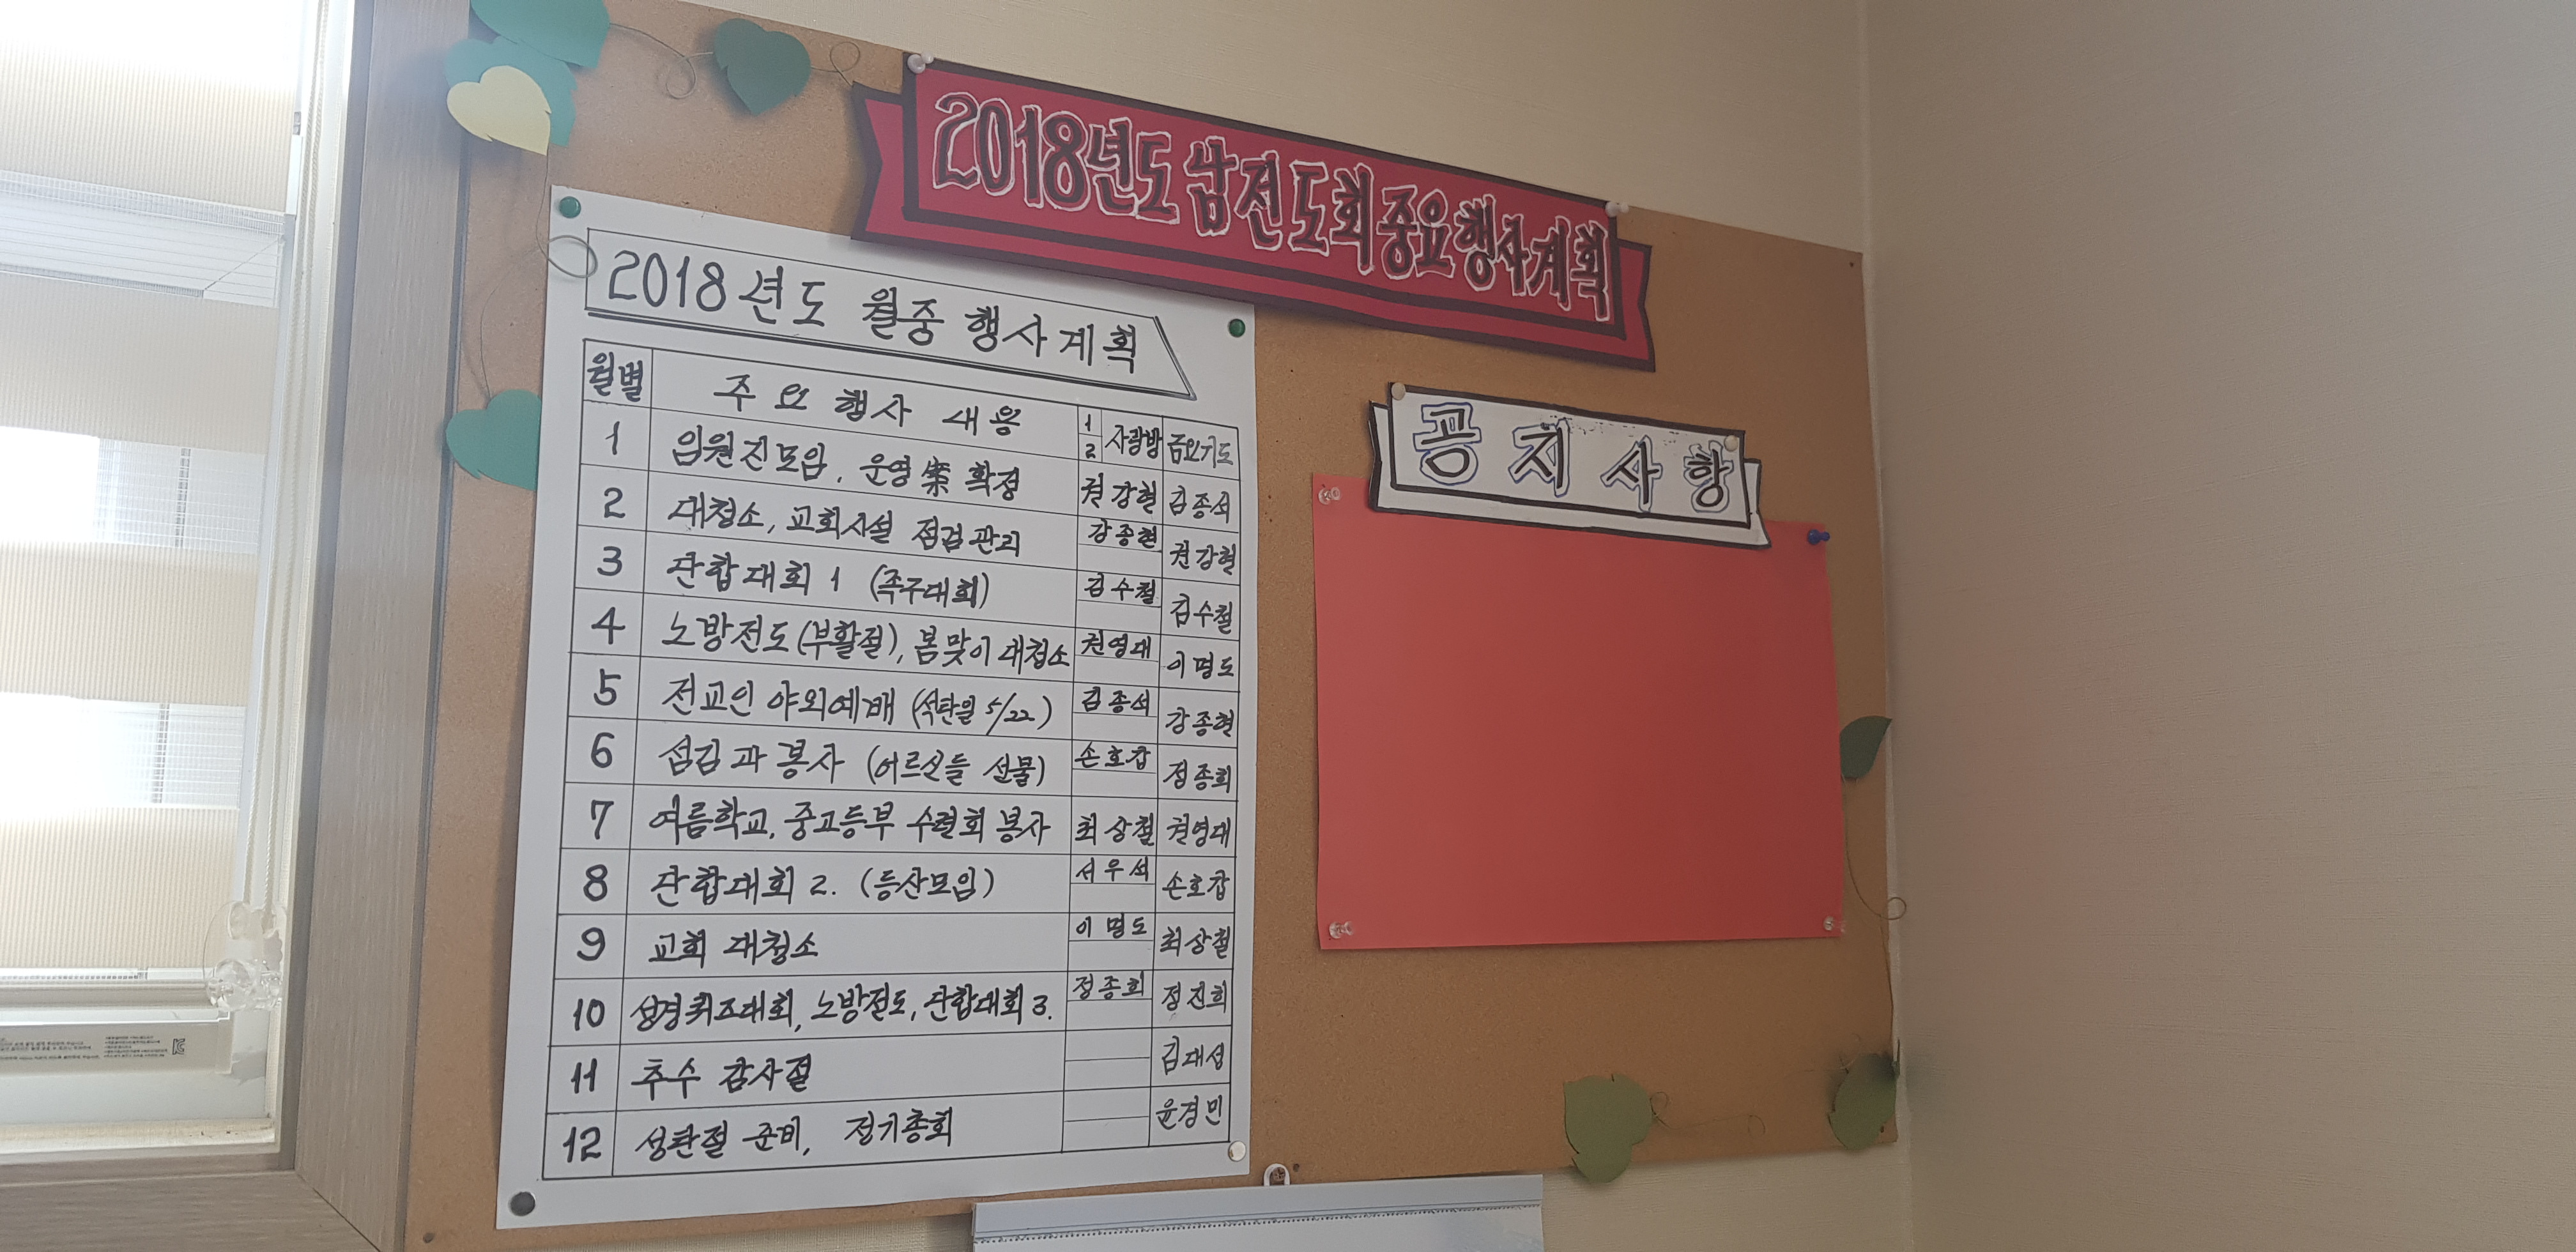 2018년도 남전도회 중요행사계획
2018년도 월중 행사계획
월별 주요행사 내용 1 2 사랑방 금요기도
1 임원진모임, 운영案 확정 권강현 김종석
2 대청소, 교회시설 점검관리 강종현 권강현
3 단합대회 1 (족구대회) 김수철 김수철
4 노방전도(부활절), 봄맞이 대청소 권영대 이명도
5 전교인 야외예배 (석탄일 5/22) 김종석 강종현
6 섬김과 봉사 (어르신들 선물) 손호갑 정종희
7 여름학교, 중고등부 수련회 봉사 최상철 권영대
8 단합대회 2. (등산모임) 서우석 손호갑
9 교회 대청소 이명도 최상철
10 성경퀴즈대회, 노방전도, 단합대회 3. 정종희 정진희
11 추수 감사절 김대성
12 성탄절 준비, 정기총회 윤경민
공지사항